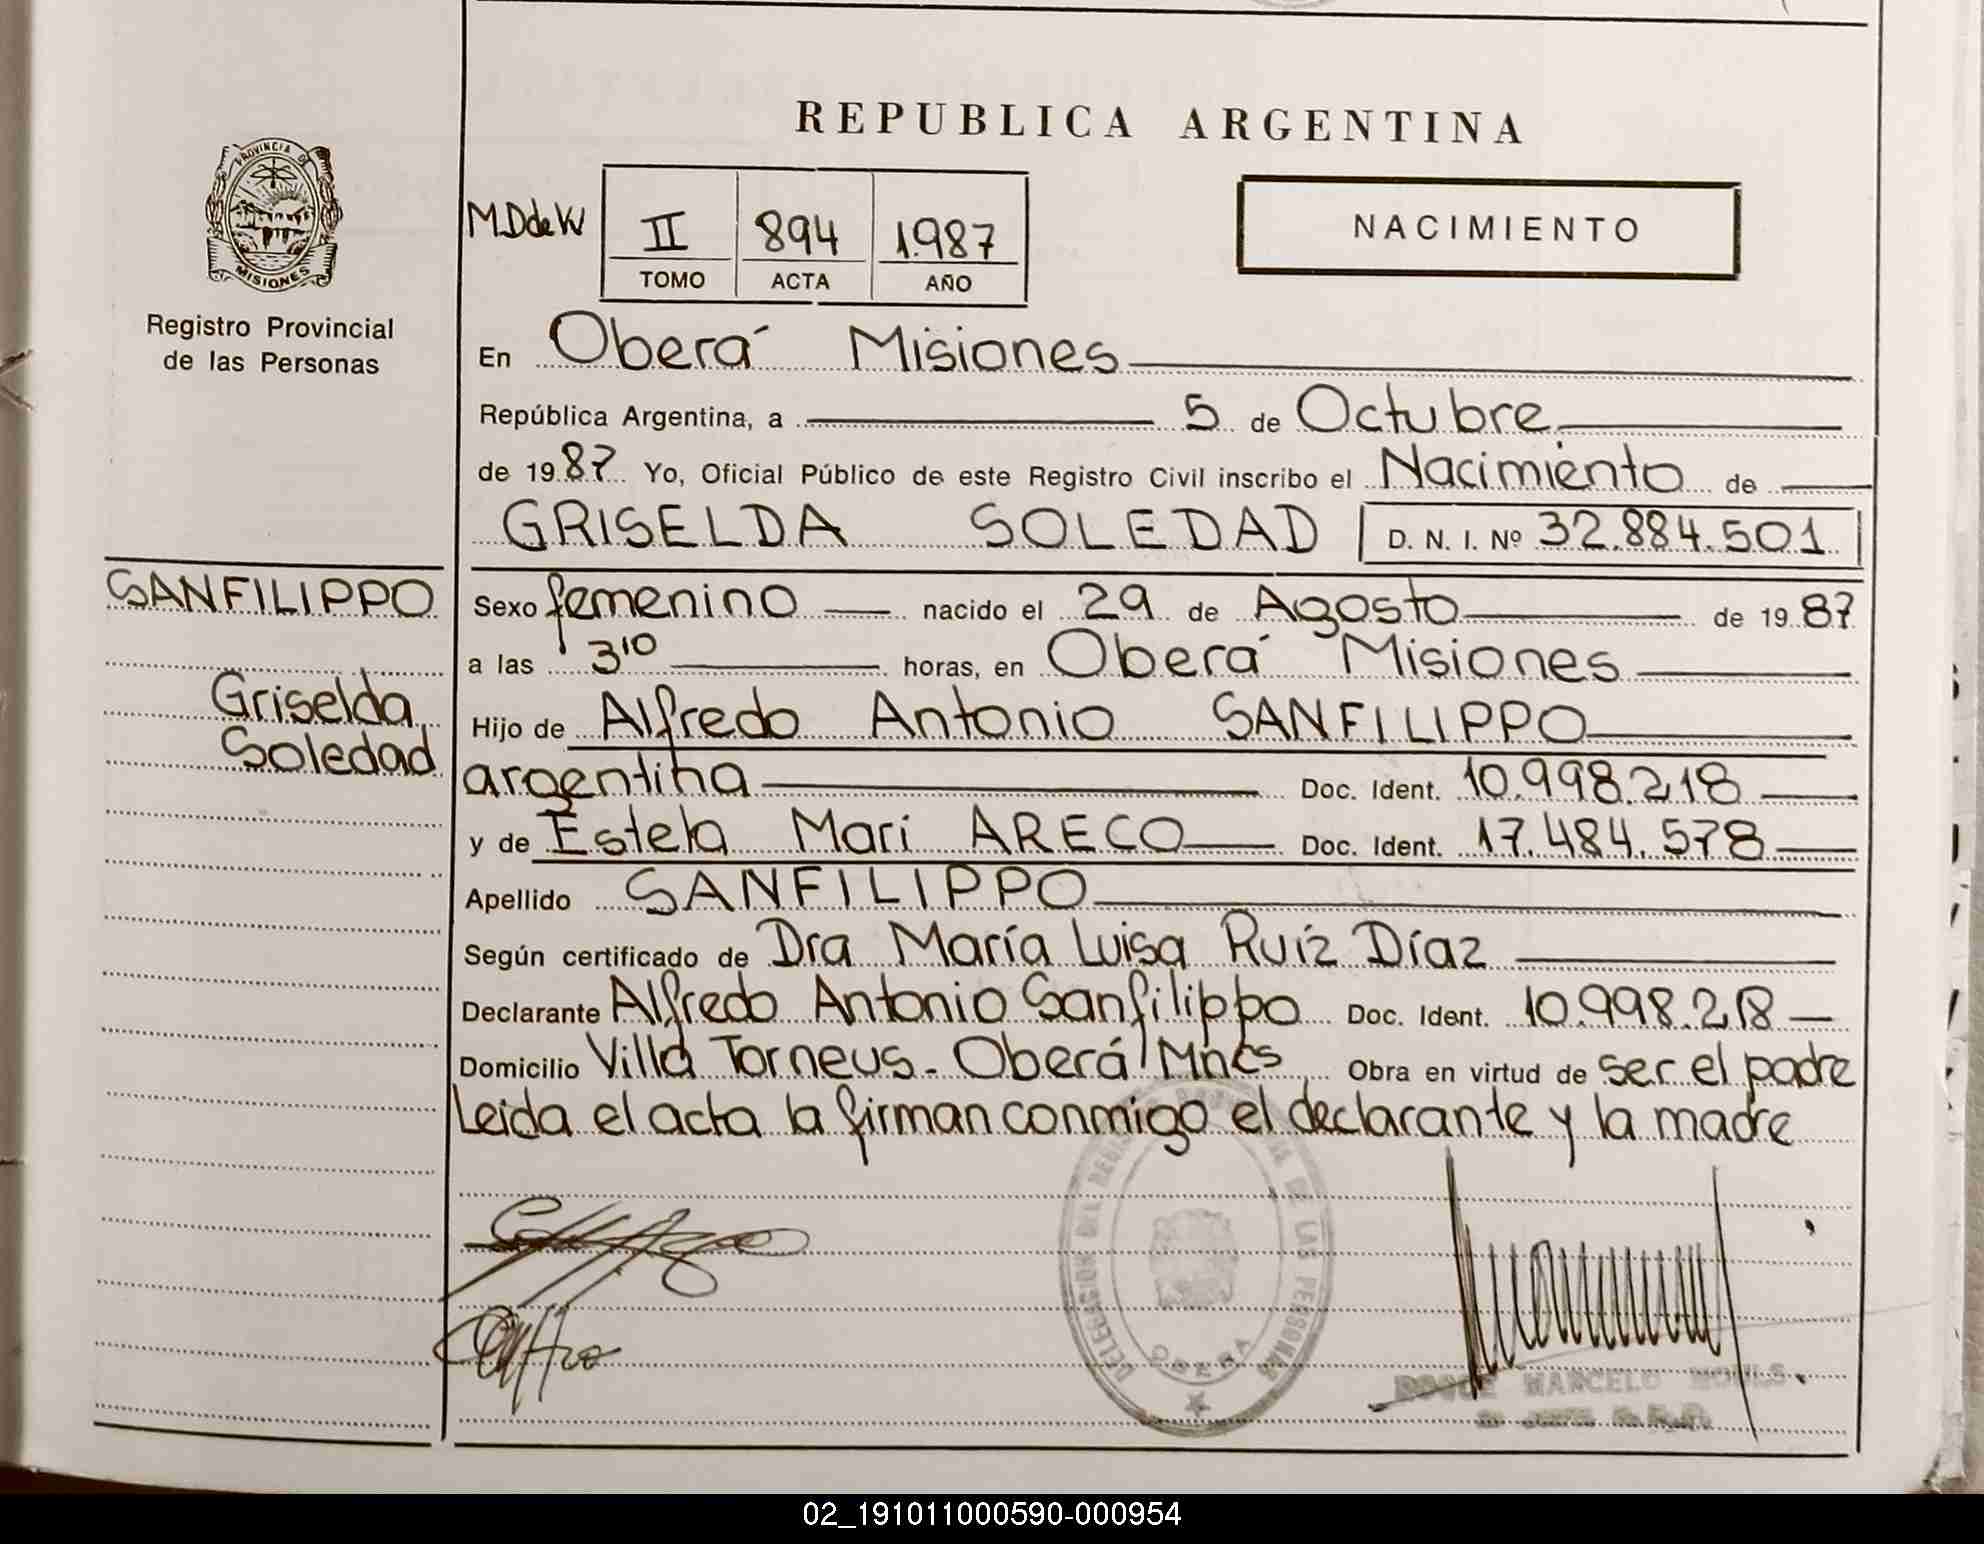 REPUBLICA ARGENTINA
PROVINCIA DE
MISIONES
Registro Provincial
de las Personas
MDdeW
II 894 1.987
TOMO ACTA AÑO
NACIMIENTO
En Oberá Misiones
República Argentina, a 5 de Octubre
de 1987 Yo, Oficial Público de este Registro Civil inscribo el Nacimiento de
GRISELDA SOLEDAD D. N. I. Nº 32.884.501
SANFILIPPO
Griselda
Soledad
Sexo femenino nacido el 29 de Agosto de 1987
a las 3¹⁰ horas, en Oberá Misiones
Hijo de Alfredo Antonio SANFILIPPO
argentina Doc. Ident. 10.998.218
y de Estela Mari ARECO Doc. Ident. 17.484.578
Apellido SANFILIPPO
Según certificado de Dra María Luisa Ruíz Díaz
Declarante Alfredo Antonio Sanfilippo Doc. Ident. 10.998.218
Domicilio Villa Torneus - Oberá Mnes Obra en virtud de ser el padre
Leida el acta la firman conmigo el declarante y la madre
DELEGACION DEL REGISTRO DE LAS PERSONAS
OBERA
ROQUE MARCELO
02_191011000590-000954